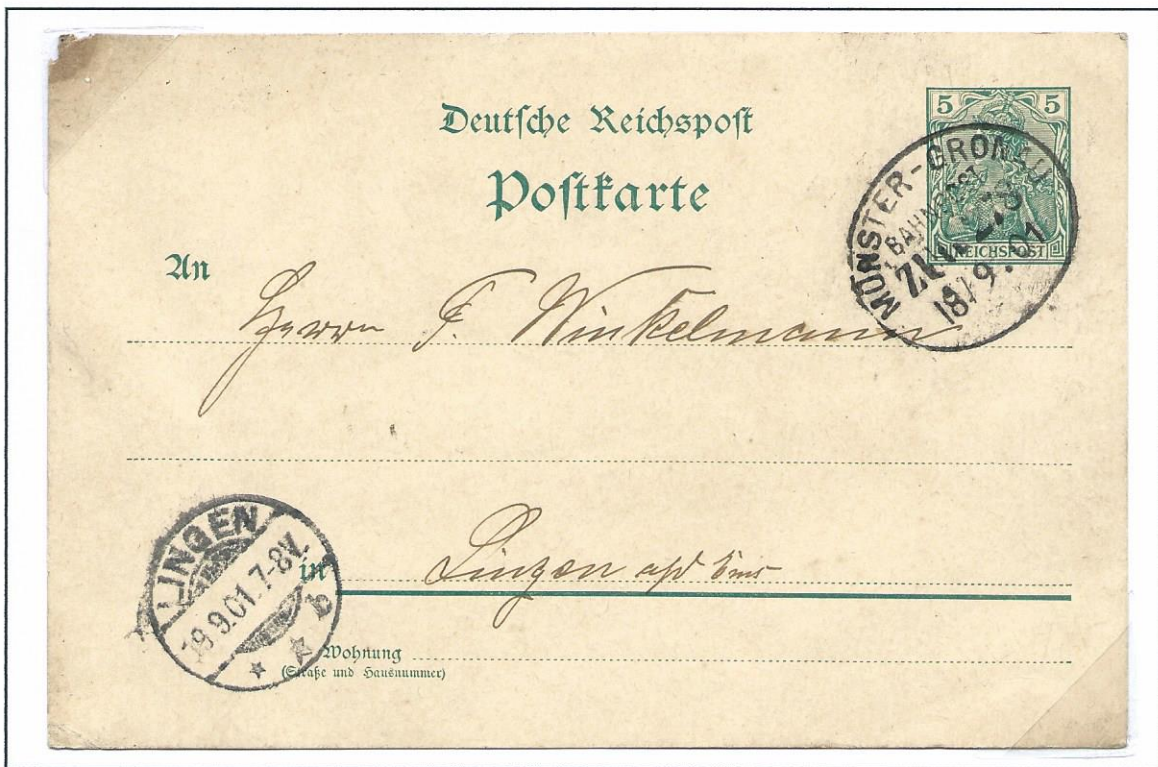 Deutsche Reichspost
Postkarte
5 5
REICHSPOST
MÜNSTER-GRONAU
BAHNPOST
ZUG 273
18/9.01
An
Herrn F. Winkelmann
in Lingen a/d Ems
LINGEN
19 9.01.7-8V.
* * b
Wohnung
(Straße und Hausnummer)